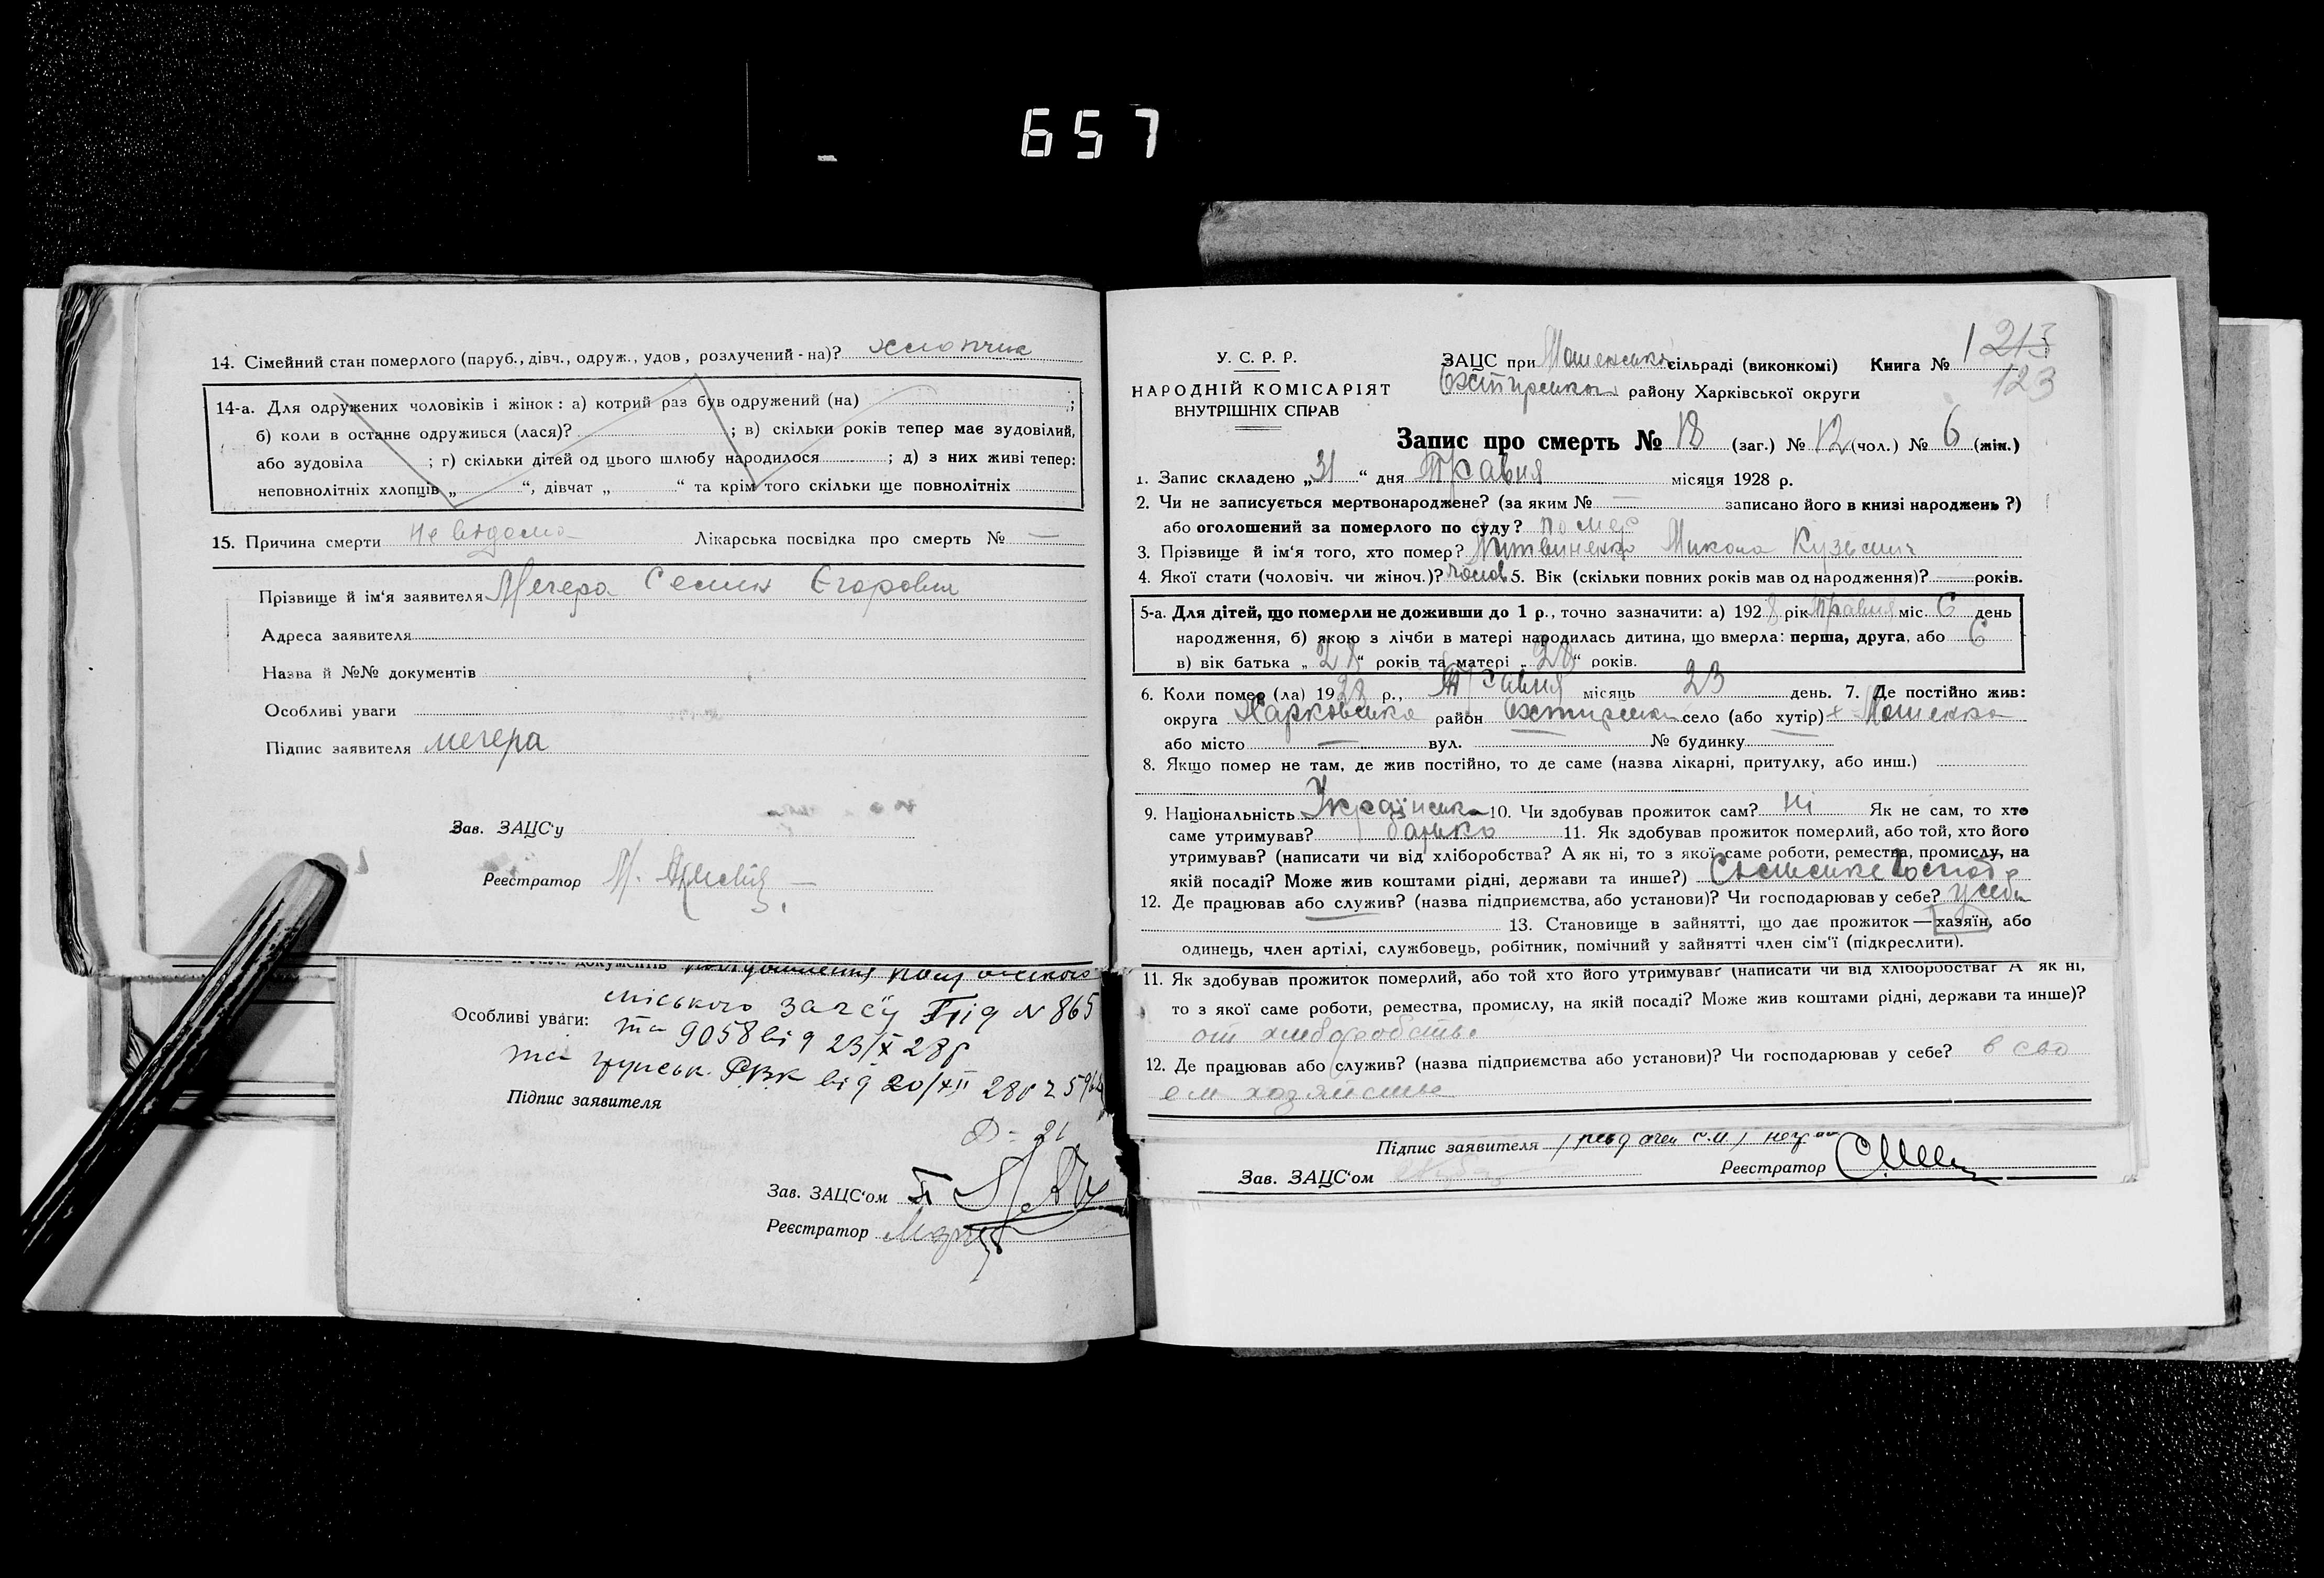 657
14. Сімейний стан померлого (паруб., дівч., одруж., удов, розлучений - на)? хлопчик
14-а. Для одружених чоловіків і жінок: а) котрий раз був одружений (на) ;
б) коли в останнє одружився (лася)? ; в) скільки років тепер має зудовілий,
або зудовіла ; г) скільки дітей од цього шлюбу народилося ; д) з них живі тепер:
неповнолітніх хлопців „ “, дівчат „ “ та крім того скільки ще повнолітніх
15. Причина смерти Не відома Лікарська посвідка про смерть № —
Прізвище й ім'я заявителя Мегера Семен Єгорович
Адреса заявителя
Назва й №№ документів
Особливі уваги
Підпис заявителя мегера
Зав. ЗАЦС'у
Реєстратор М.
документів
міського загсу Від N 865
Особливі уваги: та 9058 від 23/X 28 р
та РВК від 20/XII 28 р
Підпис заявителя
Зав. ЗАЦС'ом
Реєстратор
У. С. Р. Р.
НАРОДНІЙ КОМІСАРІЯТ
ВНУТРІШНІХ СПРАВ
ЗАЦС при Мошенські сільраді (виконкомі) Книга № 1 213
123
Охтирської району Харківської округи
Запис про смерть № 18 (заг.) № 12 (чол.) № 6 (жін.)
1. Запис складено „31“ дня Травня місяця 1928 р.
2. Чи не записується мертвонароджене? (за яким № — записано його в книзі народжень?)
або оголошений за померлого по суду? помер
3. Прізвище й ім'я того, хто помер? Литвиненко Микола Кузьмич
4. Якої стати (чоловіч. чи жіноч.)? чолов. 5. Вік (скільки повних років мав од народження)? — років.
5-а. Для дітей, що померли не доживши до 1 р., точно зазначити: а) 1928 рік травня міс. 6 день
народження, б) якою з лічби в матері народилась дитина, що вмерла: перша, друга, або 6
в) вік батька „28“ років та матері „28“ років.
6. Коли помер (ла) 1928 р., Травня місяць 23 день. 7. Де постійно жив:
округа Харковська район Охтирськи село (або хутір) х Мошенка
або місто — вул. № будинку
8. Якщо помер не там, де жив постійно, то де саме (назва лікарні, притулку, або инш.)
9. Національність Українська 10. Чи здобував прожиток сам? Ні Як не сам, то хто
саме утримував? батько 11. Як здобував прожиток померлий, або той, хто його
утримував? (написати чи від хліборобства? А як ні, то з якої саме роботи, ремества, промислу, на
якій посаді? Може жив коштами рідні, держави та инше?) Сільське Господ
12. Де працював або служив? (назва підприємства, або установи)? Чи господарював у себе? у себе
13. Становище в зайнятті, що дає прожиток — хазяїн, або
одинець, член артілі, службовець, робітник, помічний у зайнятті член сім'ї (підкреслити).
11. Як здобував прожиток померлий, або той хто його утримував? (написати чи від хліборобства? А як ні,
то з якої саме роботи, ремества, промислу, на якій посаді? Може жив коштами рідні, держави та инше)?
от хлеборобства
12. Де працював або служив? (назва підприємства або установи)? Чи господарював у себе? в сво
ем хозяйстве
Підпис заявителя
Зав. ЗАЦС'ом Реєстратор